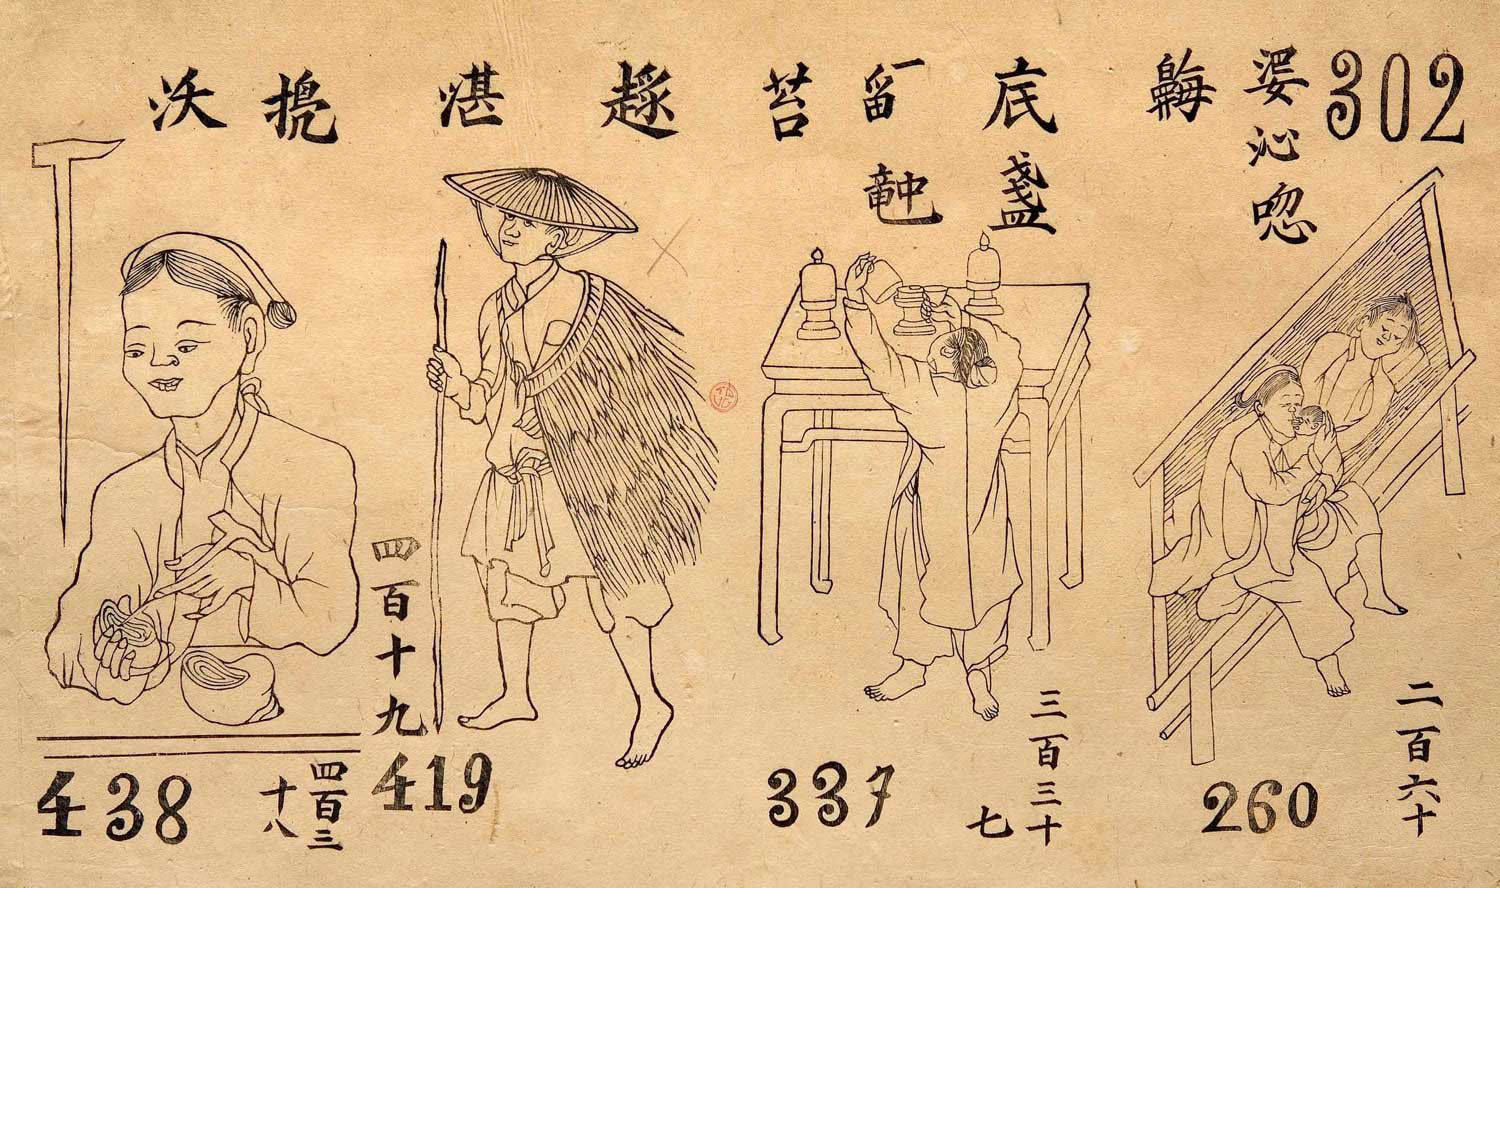 302
沁
唿
二百六十
260
底
盏
三百三十
七
337
苔
趢
湛
四百十九
419
沃
四百三
十八
438